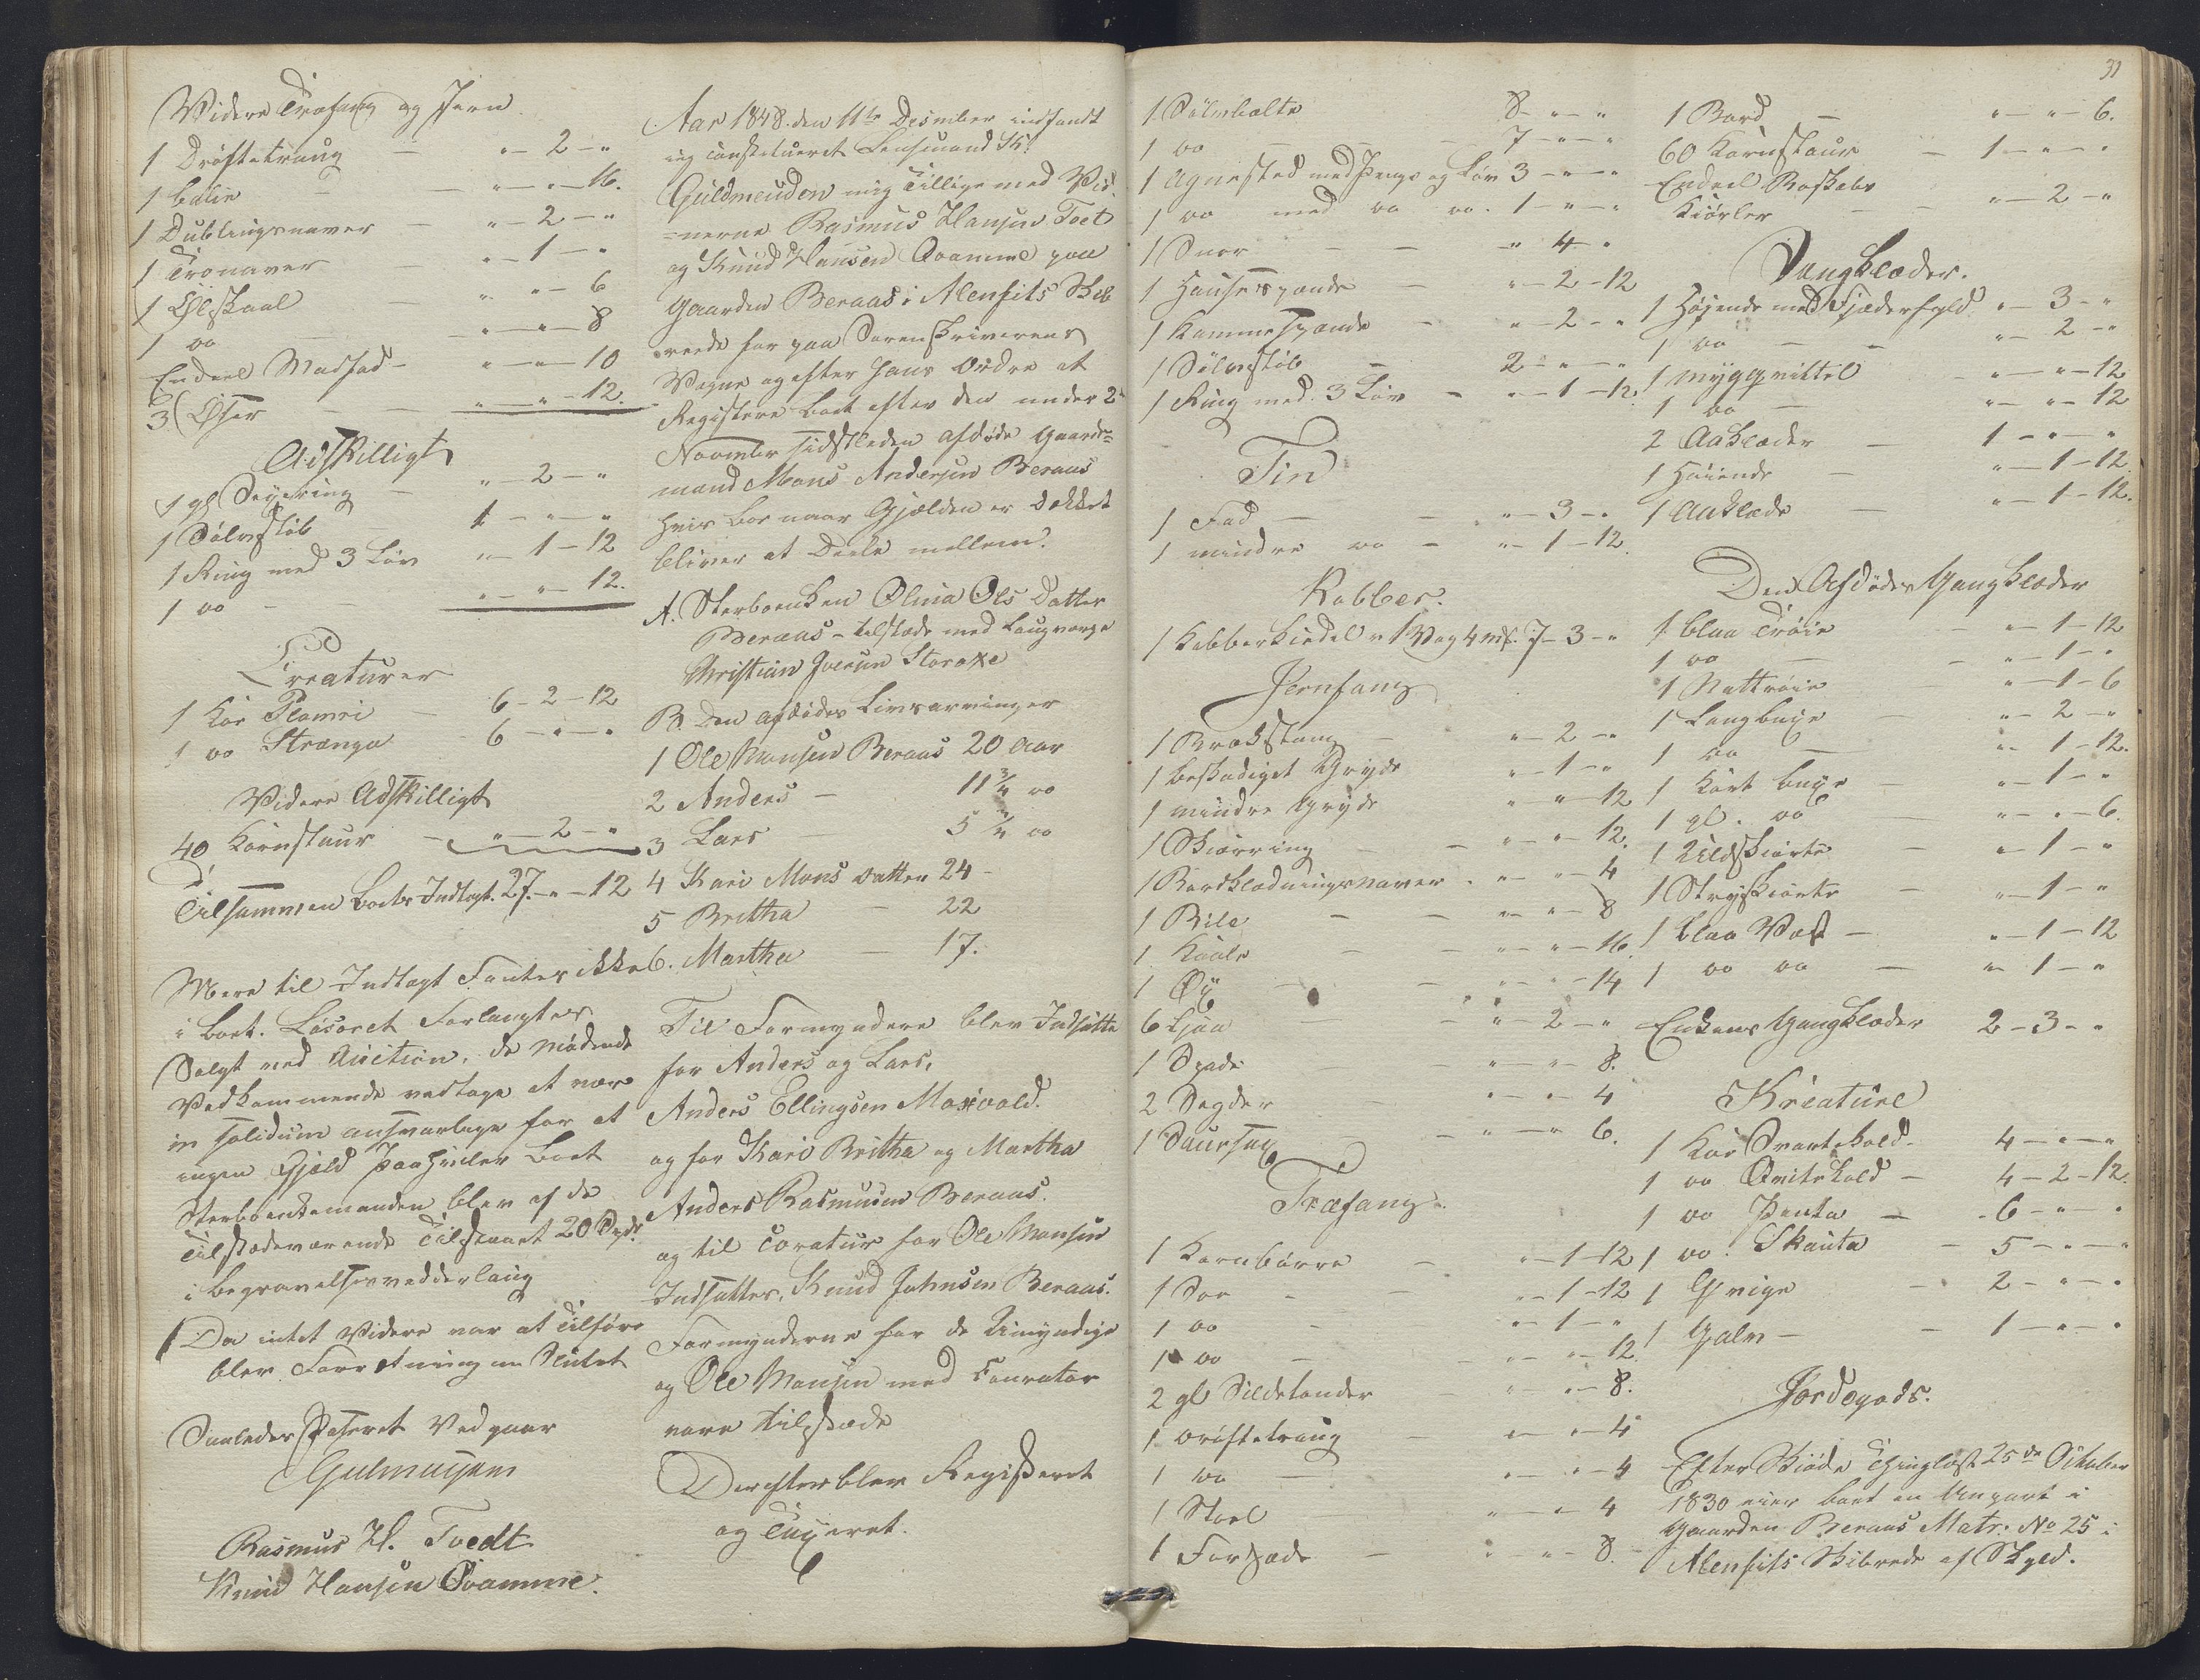 Videre Træfang og Jern
1 Dröftetraug — " — 2 — "
1 balie — " — " — 16.
1 Dublingsnaver — " — 2 — "
1 Tronaver — " — 1 — "
1 Ölskaal — " — " — 6
1 do — " — " — 8
Endeel Madfad — " — " — 10
3 Öser — " — " — 12.
Adskilligt
1 gl — " — 2 — "
1 Sölvstöb 1 — " — "
1 Ring med 3 Löv " — 1 — 12
1 do — " — " — 12.
Creaturer
1 Koe Blomri — 6 — 2 — 12
1 do Strænga 6 — " — "
Videre Adskilligt
40 Kornstaur — " — 2 — "
Tilsammen Boets Indtægt. 27. — " — 12
Mere til Indtægt Fantes ikke
i Boet. Lösöret Forlangtes
Solgt ved Auction, de mödende
Vedkommende vedtage at være
in solidum ansvarlige for at
ingen Gjæld paahviler Boet
Sterboenkemanden blev af de
Tilstædeværende Tilstaaet 20 Spd.
i begravelsesvedderlaug
Da intet Videre var at Tilföre
blev Forretningen Sluttet
Saaledes Passeret Vedgaar
Rasmus H. Tvedt
Knud Hansen Qvamme.
Aar 1848. den 11te Desember indfandt
sig constitueret Lensmand K.
mig Tillige med Vid-
-nerne Rasmus Hansen Tvet
og Knud Hansen Qvamme paa
Gaarden Beraas i Alenfits Skib
rede for paa Sorenskriverens
Vegne og efter hans Ordre at
Registere Boet efter den under 2
November sidstleden afdöde Gaard-
mand Mons Andersen Beraas
hvis Boe naar Gjælden er Dækket
bliver at Deele mellem.
A. Sterboenken Olina Ols Datter
Beraas — tilstæde med Laugværge
Christian Iversen Storaxe
B. Den afdödes Livsarvinger
1 Ole Monsen Beraas 20 Aar
2 Anders — 11 3/4 do
3 Lars — 5 3/4 do
4 Kari Mons Datter 24 —
5 Britha — 22
6. Martha — 17.
Til Formyndere blev Indsatte
for Anders og Lars,
Anders Ellingsen Maxvold.
og for Kari Britha og Martha
Anders Rasmusen Beraas.
og til Coratur for Ole Monsen
Indsattes, Knud Johnsen Beraas.
Formynderne for de Umyndige
og Ole Monsen med Courator
vare tilstæde
Derefter blev Registeret
og Taxeret.
31
1 Sölvbælte 8 — " — "
1 do — 7 — " — "
1 Agnested med Penge og Löv 3 — " — "
1 do med do do. 1 — " — "
1 Snor — " 4 — "
1 " — 2 — 12
1 " — 2 — "
1 Sölvstöb — 2 — " — "
1 Ring med 3 Löv — " — 1 — 12.
Tin
1 Fad — " — 3 — "
1 mindre do — " — 1 — 12.
Kobber.
1 Kobberkiedel v 1 Vog 4 mk. 7 — 3 — "
Jernfang
1 Brækstang — " — 2 — "
1 beskadiget Gryde " — 1 — "
1 mindre Gryde " — " — 12
1 Skiærring — " — " — 12.
1 Bordklædningsnaver. " — " — 4
1 Bile — " — " — 8
1 Kaale — " — " — 16.
1 Öx — " — " — 14
6 Ljaa — " — 2 — "
1 Spade — " — " — 8.
2 Segder — " — " — 4
1 Saursax — " — " — 6.
Træfang.
1 Kornbörre — " — 1 — 12
1 Soe — " — 1 — 12
1 do — " — 1 — "
1 do — " — " — 12
2 gl Sildetönder — " — " — 8.
1 dröftetraug — " — " — 4
1 do — " — " — 4
1 Stoel " — " — 4
1 Forsæde — " — " — 8.
1 Bord — " — " — 6.
60 Kornstaur — 1 — " — "
Endeel Boskabs
Kiörler — " — 2 — "
Sengklæder.
1 Höjende med Fjæderfyld " — 3 — "
1 do — " — 2 — "
1 — " — " — 12
1 do — " — " — 12
2 Aaklæder — 1 — " — "
1 Höiende — " — 1 — 12.
1 Aaklæde — " — 1 — 12.
Den Afdödes Gangklæder
1 blaa Tröie — " — 1 — 12
1 do — " — 1 — "
1 Nattröie " — 1 — 6
1 Langbuxe — " — 2 — "
1 do — " — 1 — 12.
1 Kort buxe — " — 1 — "
1 gl. do — " — " — 6.
1 Uldskiorte — " — 1 — "
1 Stryskiorte — " — 1 — "
1 blaa Vest — " — 1 — 12
1 do do — " — 1 — "
Enkens Gangklæder 2 — 3 — "
Kreature
1 Koe Svartekold 4 — " — "
1 do Qvitekold — 4 — 2 — 12.
1 do Penta — 6 — " — "
1 do. Skauta — 5 — " — "
1 Qvige — 2 — " — "
1 Galv — 1 — " — "
Jordegods.
Efter Skiöde Thinglæst 25de October
1830 eier boet en Ungpart i
Gaarden Beraas Matr: No 25 i
Alenfits Skibrede af Skyld.